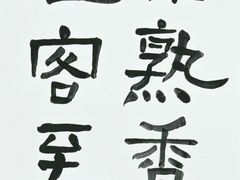 熟香
客至